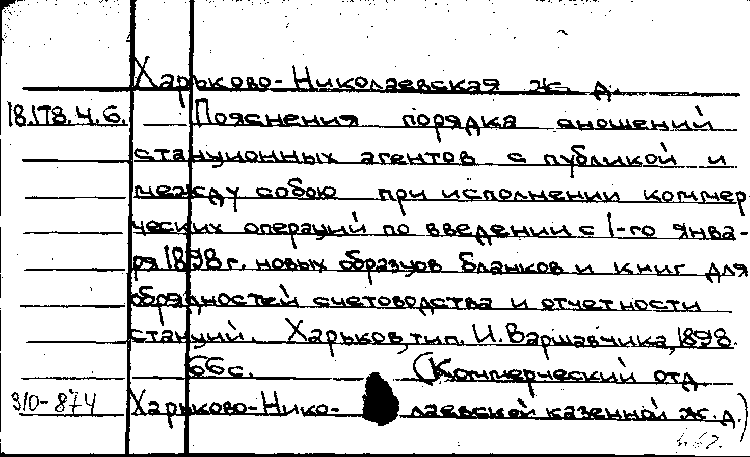 Харьково-Николаевская ж. д.
18.178.4.6. Пояснения порядка сношений
станционных агентов с публикой и
между собою при исполнении коммер
ческих операций по введении с 1-го янва-
ря 1898 г. новых образцов бланков и книг для
обрядностей счетоводства и отчетности
станций. Харьков, тип. И. Варшавчика, 1898.
66 с. (Коммерческий отд.
310-874 Харьково-Нико- лаевской казенной ж. д.)